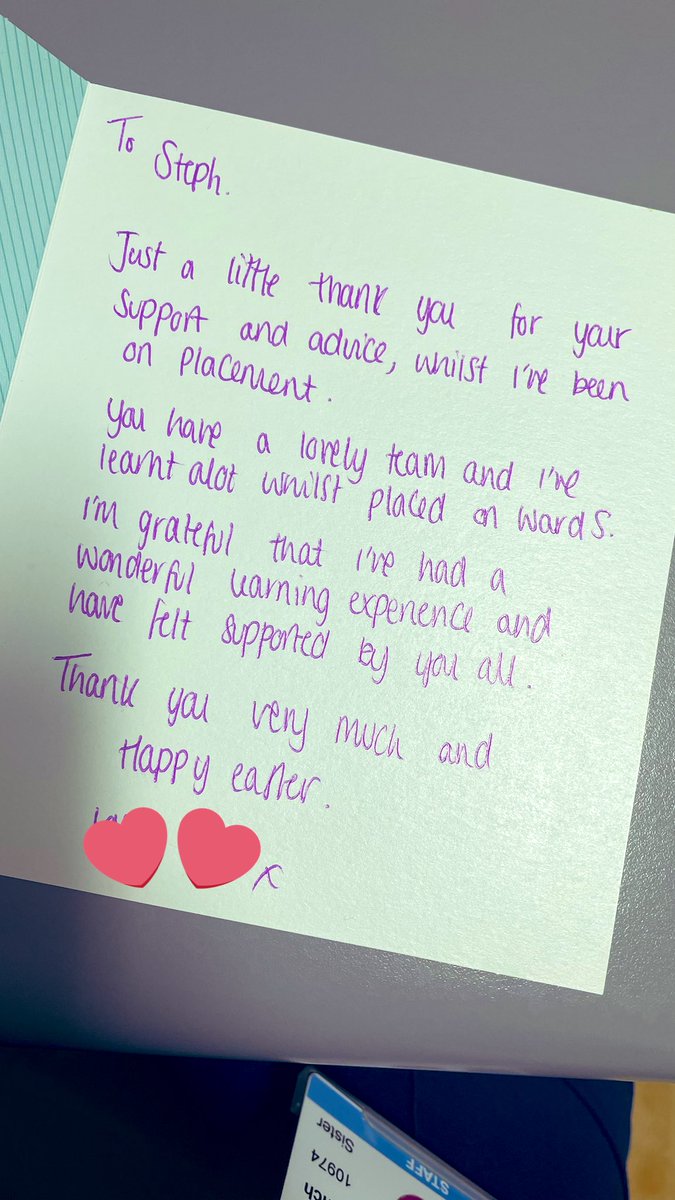 To Steph.
Just a little thank you for your
support and advice, whilst I've been
on placement.
You have a lovely team and I've
learnt alot whilst placed on Ward S.
I'm grateful that I've had a
wonderful learning experience and
have felt supported by you all.
Thank you very much and
Happy easter.
x
STAFF
Sister
10974
nch